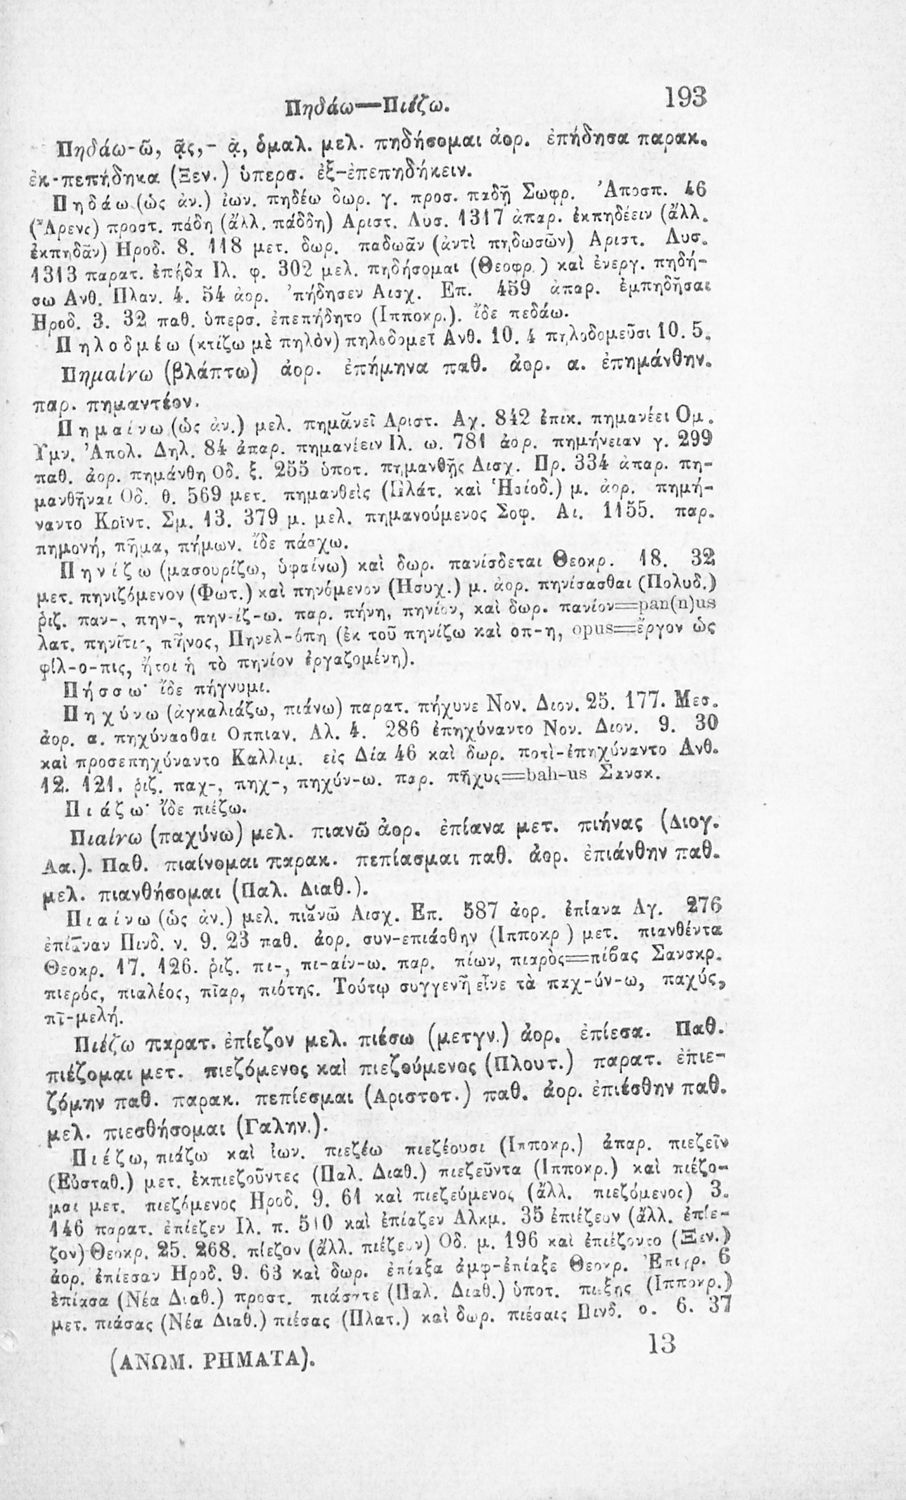 Πηδάω—Πιέζω. 193
Πηδάω-ῶ, ᾷς,- ᾷ, ὁμαλ. μελ. πηδήσομαι ἀορ. ἐπήδησα παρακ.
ἐκ-πεπήδηκα (Ξεν.) ὑπερσ. ἐξ-επεπηδήκειν.
Πηδάω (ὡς ἀν.) ἰων. πηδέω δωρ. γ. προσ. παδῇ Σωφρ. Ἀποσπ. 46
(Ἄρενς) προστ. πάδη (ἄλλ. πάδδη) Αριστ. Λυσ. 1317 ἀπαρ. ἐκπηδέειν (ἄλλ.
ἐκπηδᾶν) Ηροδ. 8. 118 μετ. δωρ. παδωᾶν (ἀντὶ πηδωσῶν) Αριστ. Λυσ.
1313 παρατ. ἐπήδα Ιλ. φ. 302 μελ. πηδήσομαι (Θεοφρ.) καὶ ἐνεργ. πηδή-
σω Ανθ. Πλαν. 4. 54 ἀορ. 'πήδησεν Αισχ. Επ. 459 ἀπαρ. ἐμπηδῆσαι
Ηροδ. 3. 32 παθ. ὑπερσ. ἐπεπήδητο (Ιπποκρ.). ἴδε πεδάω.
Πηλοδμέω (κτίζω μὲ πηλὸν) πηλοδομεῖ Ανθ. 10. 4 πηλοδομεῦσι 10. 5.
Πημαίνω (βλάπτω) ἀορ. ἐπήμηνα παθ. ἀορ. α. ἐπημάνθην.
παρ. πημαντέον.
Πημαίνω (ὡς ἀν.) μελ. πημᾰνεῖ Αριστ. Αχ. 842 ἐπικ. πημανέει Ομ.
Υμν. Ἀπολ. Δηλ. 84 ἀπαρ. πημανέειν Ιλ. ω. 781 ἀορ. πημήνειαν γ. 299
παθ. ἀορ. πημάνθη Οδ. ξ. 255 ὑποτ. πημανθῇς Αισχ. Πρ. 334 ἀπαρ. πη-
μανθῆναι Οδ. θ. 569 μετ. πημανθεὶς (Πλάτ. καὶ Ἡσίοδ.) μ. ἀορ. πημή-
ναντο Κοϊντ. Σμ. 13. 379 μ. μελ. πημανούμενος Σοφ. Αι. 1155. παρ.
πημονή, πῆμα, πήμων. ἴδε πάσχω.
Πηνίζω (μασουρίζω, ὑφαίνω) καὶ δωρ. πανίσδεται Θεοκρ. 18. 32
μετ. πηνιζόμενον (Φωτ.) καὶ πηνόμενον (Ησυχ.) μ. ἀορ. πηνίσασθαι (Πολυδ.)
ῥιζ. παν-, πην-, πην-ίζ-ω. παρ. πήνη, πηνίον, καὶ δωρ. πανίον=pan(n)us
λατ. πηνῖτις, πῆνος, Πηνελ-όπη (ἐκ τοῦ πηνίζω καὶ οπ-η, opus=ἔργον ὡς
φίλ-ο-πις, ἤτοι ἡ τὸ πηνίον ἐργαζομένη).
Πήσσω· ἴδε πήγνυμι.
Πηχύνω (ἀγκαλιάζω, πιάνω) παρατ. πήχυνε Νον. Διον. 25. 177. Μεσ.
ἀορ. α. πηχύνασθαι Οππιαν. Αλ. 4. 286 ἐπηχύναντο Νον. Διον. 9. 30
καὶ προσεπηχύναντο Καλλιμ. εἰς Δία 46 καὶ δωρ. ποτὶ-ἐπηχύναντο Ανθ.
12. 121. ῥιζ. παχ-, πηχ-, πηχύν-ω. παρ. πῆχυς=bah-us Σανσκ.
Πιάζω· ἴδε πιέζω.
Πιαίνω (παχύνω) μελ. πιανῶ ἀορ. ἐπίανα μετ. πιήνας (Διογ.
Λα.). Παθ. πιαίνομαι παρακ. πεπίασμαι παθ. ἀορ. ἐπιάνθην παθ.
μελ. πιανθήσομαι (Παλ. Διαθ.).
Πιαίνω (ὡς ἀν.) μελ. πιᾰνῶ Αισχ. Επ. 587 ἀορ. ἐπίανα Αγ. 276
ἐπίᾱναν Πινδ. ν. 9. 23 παθ. ἀορ. συν-επιάσθην (Ιπποκρ ) μετ. πιανθέντα
Θεοκρ. 17. 126. ῥιζ. πι-, πι-αίν-ω. παρ. πίων, πιαρὸς=πίβας Σανσκρ.
πιερός, πιαλέος, πῖαρ, πιότης. Τούτῳ συγγενῆ εἶνε τὰ παχ-ύν-ω, παχύς,
πῑ-μελή.
Πιέζω παρατ. ἐπίεζον μελ. πιέσω (μετγν.) ἀορ. ἐπίεσα. Παθ.
πιέζομαι μετ. πιεζόμενος καὶ πιεζούμενος (Πλουτ.) παρατ. ἐπιε-
ζόμην παθ. παρακ. πεπίεσμαι (Αριστοτ.) παθ. ἀορ. ἐπιέσθην παθ.
μελ. πιεσθήσομαι (Γαλην.).
Πιέζω, πιάζω καὶ ἰων. πιεζέω πιεζέουσι (Ιπποκρ.) ἀπαρ. πιεζεῖν
(Εὐσταθ.) μετ. ἐκπιεζοῦντες (Παλ. Διαθ.) πιεζεῦντα (Ιπποκρ.) καὶ πιέζο-
μαι μετ. πιεζόμενος Ηροδ. 9. 61 καὶ πιεζεύμενος (ἄλλ. πιεζόμενος) 3.
146 παρατ. ἐπίεζεν Ιλ. π. 510 καὶ ἐπίαζεν Αλκμ. 35 ἐπιέζευν (ἄλλ. ἐπίε-
ζον) Θεοκρ. 25. 268. πίεζον (ἄλλ. πιέζευν) Οδ. μ. 196 καὶ ἐπιέζοντο (Ξεν.)
ἀορ. ἐπίεσαν Ηροδ. 9. 63 καὶ δωρ. ἐπίαξα ἀμφ-ἐπίαξε Θεοκρ. Ἐπιγρ. 6
ἐπίασα (Νέα Διαθ.) προστ. πιάσατε (Παλ. Διαθ.) ὑποτ. (Ιπποκρ.)
μετ. πιάσας (Νέα Διαθ.) πιέσας (Πλατ.) καὶ δωρ. πιέσαις Πινδ. ο. 6. 37
(ΑΝΩΜ. ΡΗΜΑΤΑ). 13